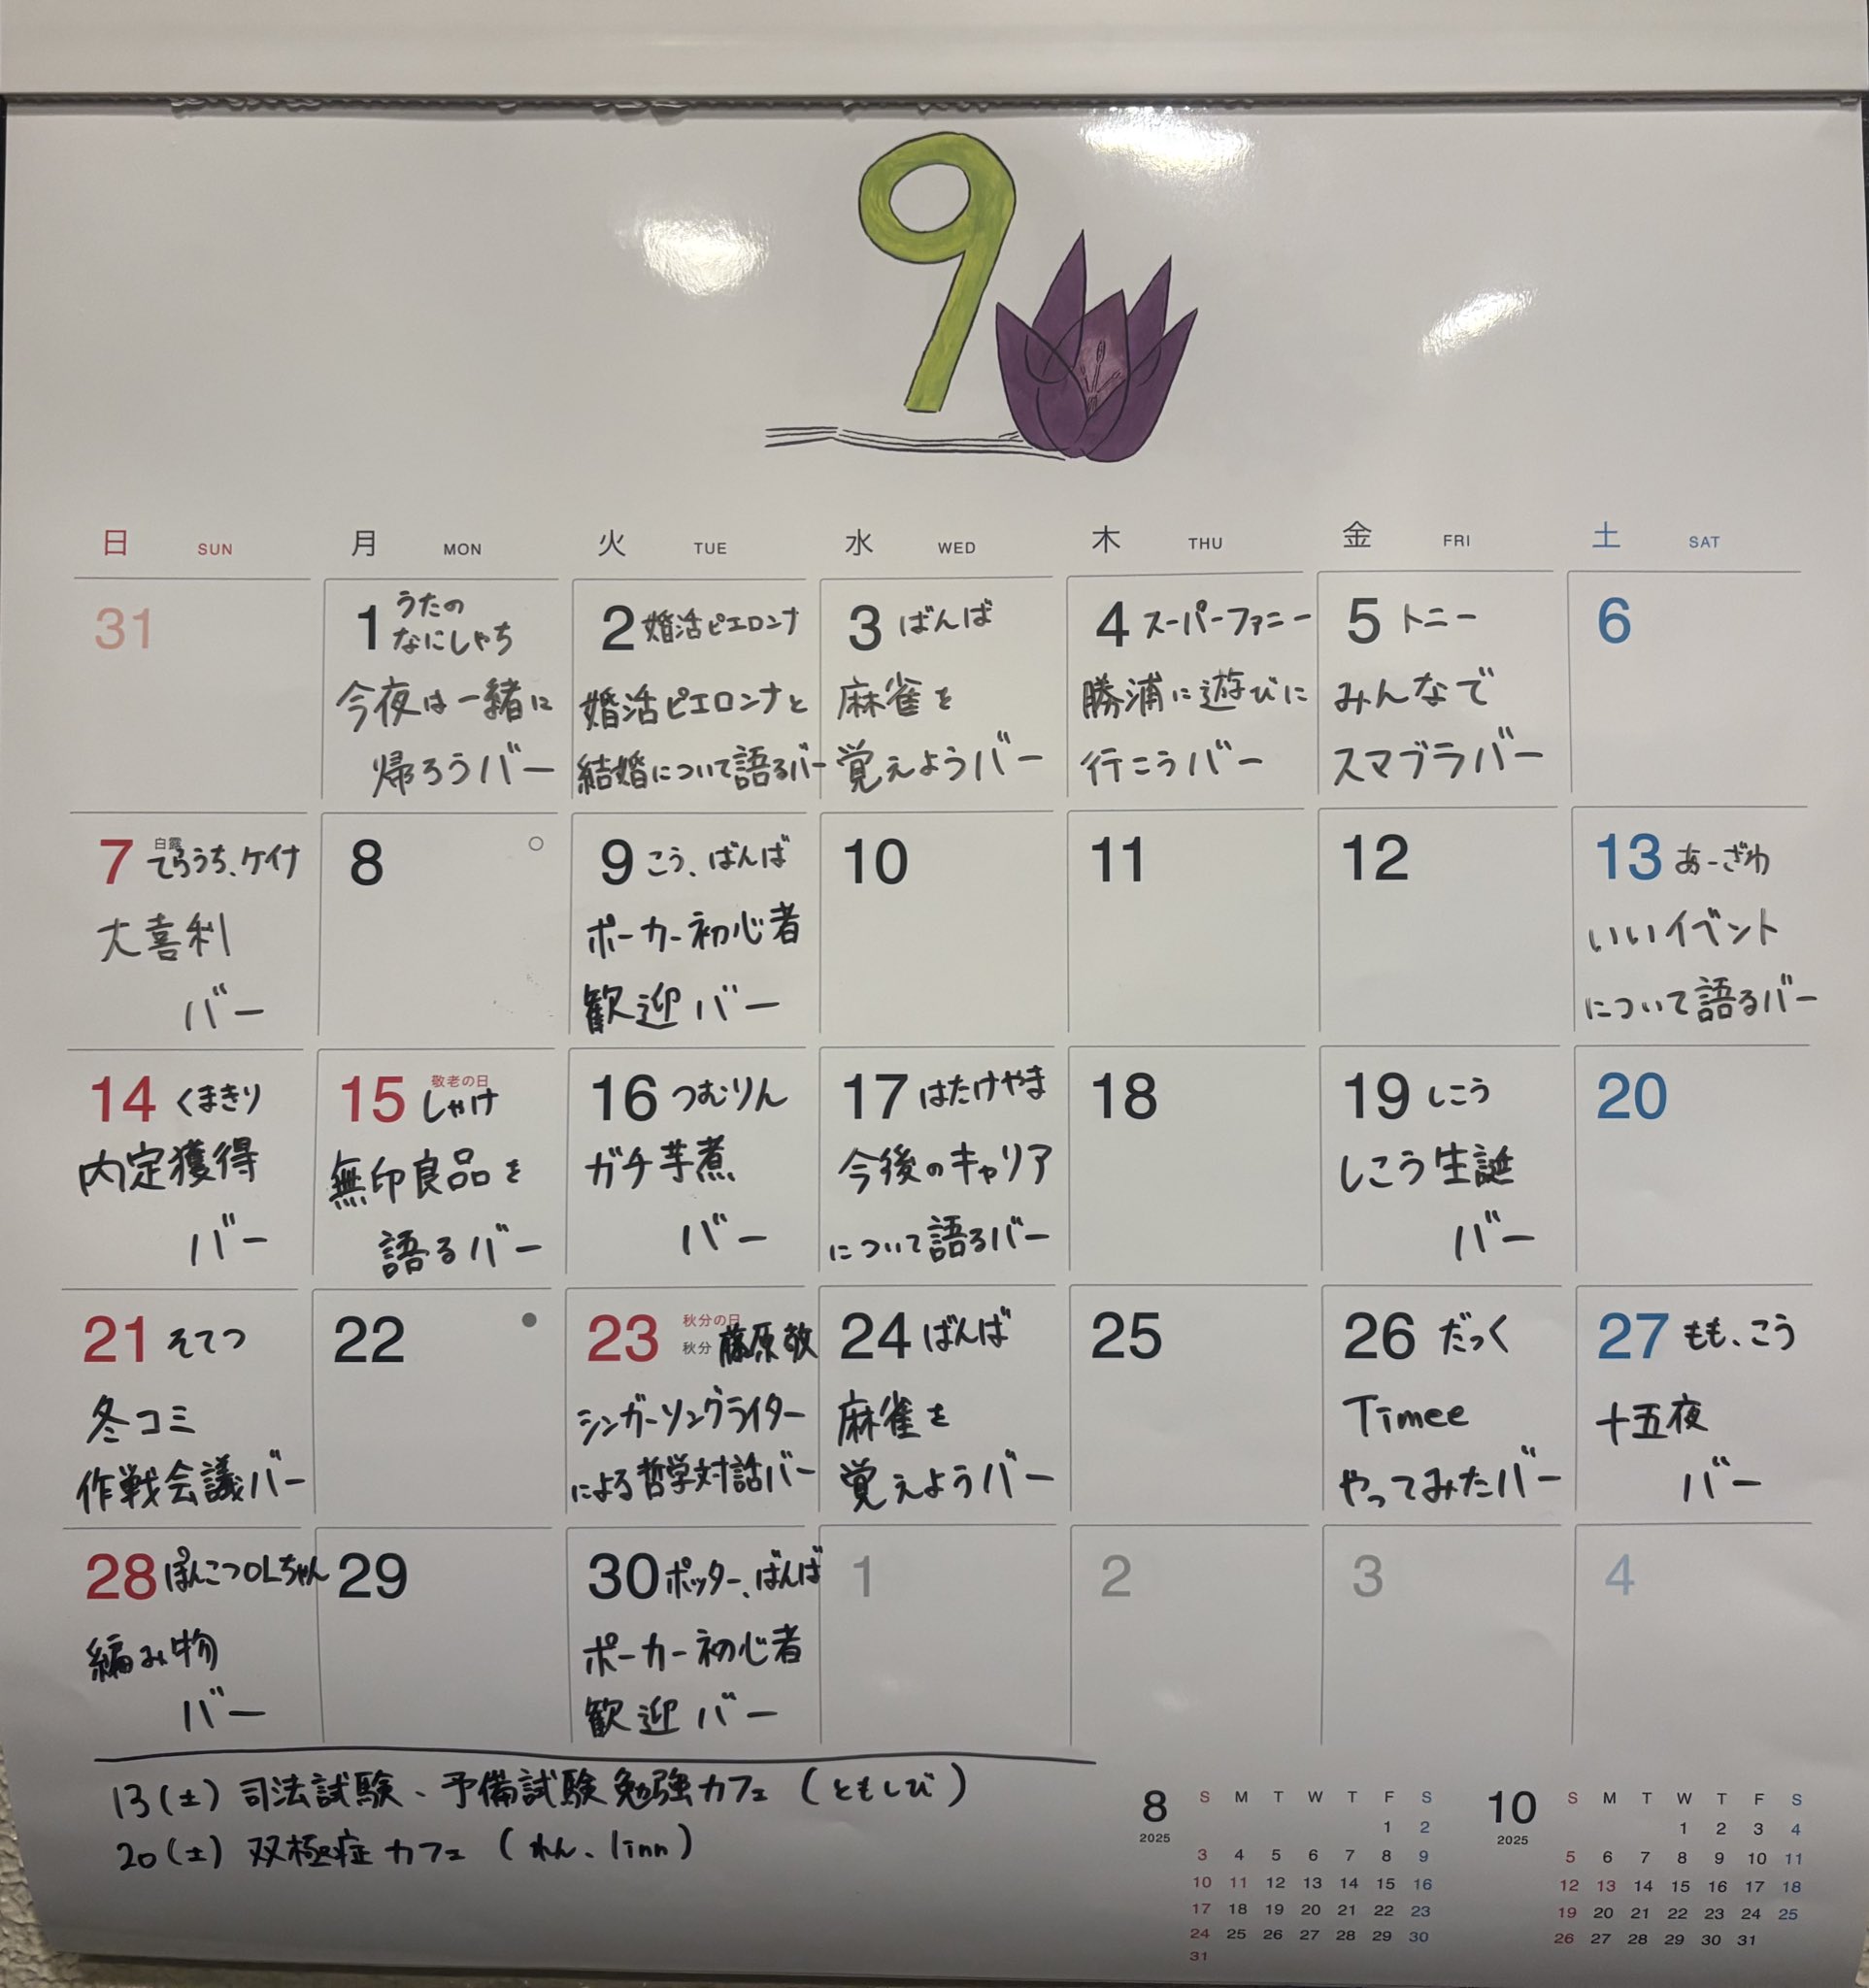 9
日 SUN 月 MON 火 TUE 水 WED 木 THU 金 FRI 土 SAT
31
1 うたの
なにしゃち
今夜は一緒に
帰ろうバー
2 婚活ピエロンナ
婚活ピエロンナと
結婚について語るバー
3 ばんば
麻雀を
覚えようバー
4 スーパーファニー
勝浦に遊びに
行こうバー
5 トニー
みんなで
スマブラバー
6
7 白露
てらうち、ケイナ
大喜利
バー
8
9 こう、ばんば
ポーカー初心者
歓迎バー
10
11
12
13 あーざわ
いいイベント
について語るバー
14 くまきり
内定獲得
バー
15 敬老の日
しゃけ
無印良品を
語るバー
16 つむりん
ガチ芋煮
バー
17 はたけやま
今後のキャリア
について語るバー
18
19 しこう
しこう生誕
バー
20
21 そてつ
冬コミ
作戦会議バー
22
23 秋分の日
秋分 藤原敬
シンガーソングライター
による哲学対話バー
24 ばんば
麻雀を
覚えようバー
25
26 だっく
Timee
やってみたバー
27 もも、こう
十五夜
バー
28 ぽんこつOLちゃん
編み物
バー
29
30 ポッター、ばんば
ポーカー初心者
歓迎バー
1
2
3
4
13(土) 司法試験、予備試験勉強カフェ(ともしび)
20(土) 双極症カフェ(れん、linn)
8
2025
S M T W T F S
1 2
3 4 5 6 7 8 9
10 11 12 13 14 15 16
17 18 19 20 21 22 23
24 25 26 27 28 29 30
31
10
2025
S M T W T F S
1 2 3 4
5 6 7 8 9 10 11
12 13 14 15 16 17 18
19 20 21 22 23 24 25
26 27 28 29 30 31